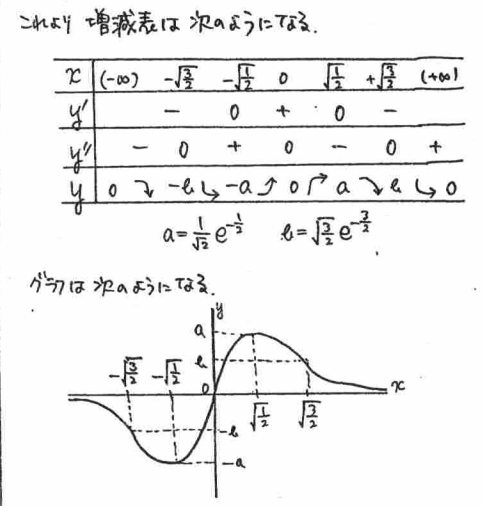 これより 増減表は 次のようになる.
x (-∞) -√3/2 -√1/2 0 √1/2 +√3/2 (+∞)
y' - 0 + 0 -
y'' - 0 + 0 - 0 +
y 0 ↘ -b ↳ -a ⤴ 0 ↱ a ↘ b ↳ 0
a = 1/√2 e^{-1/2} b = √3/2 e^{-3/2}
グラフは 次のようになる.
y
a
b
-√3/2 -√1/2 0 √1/2 √3/2 x
-b
-a